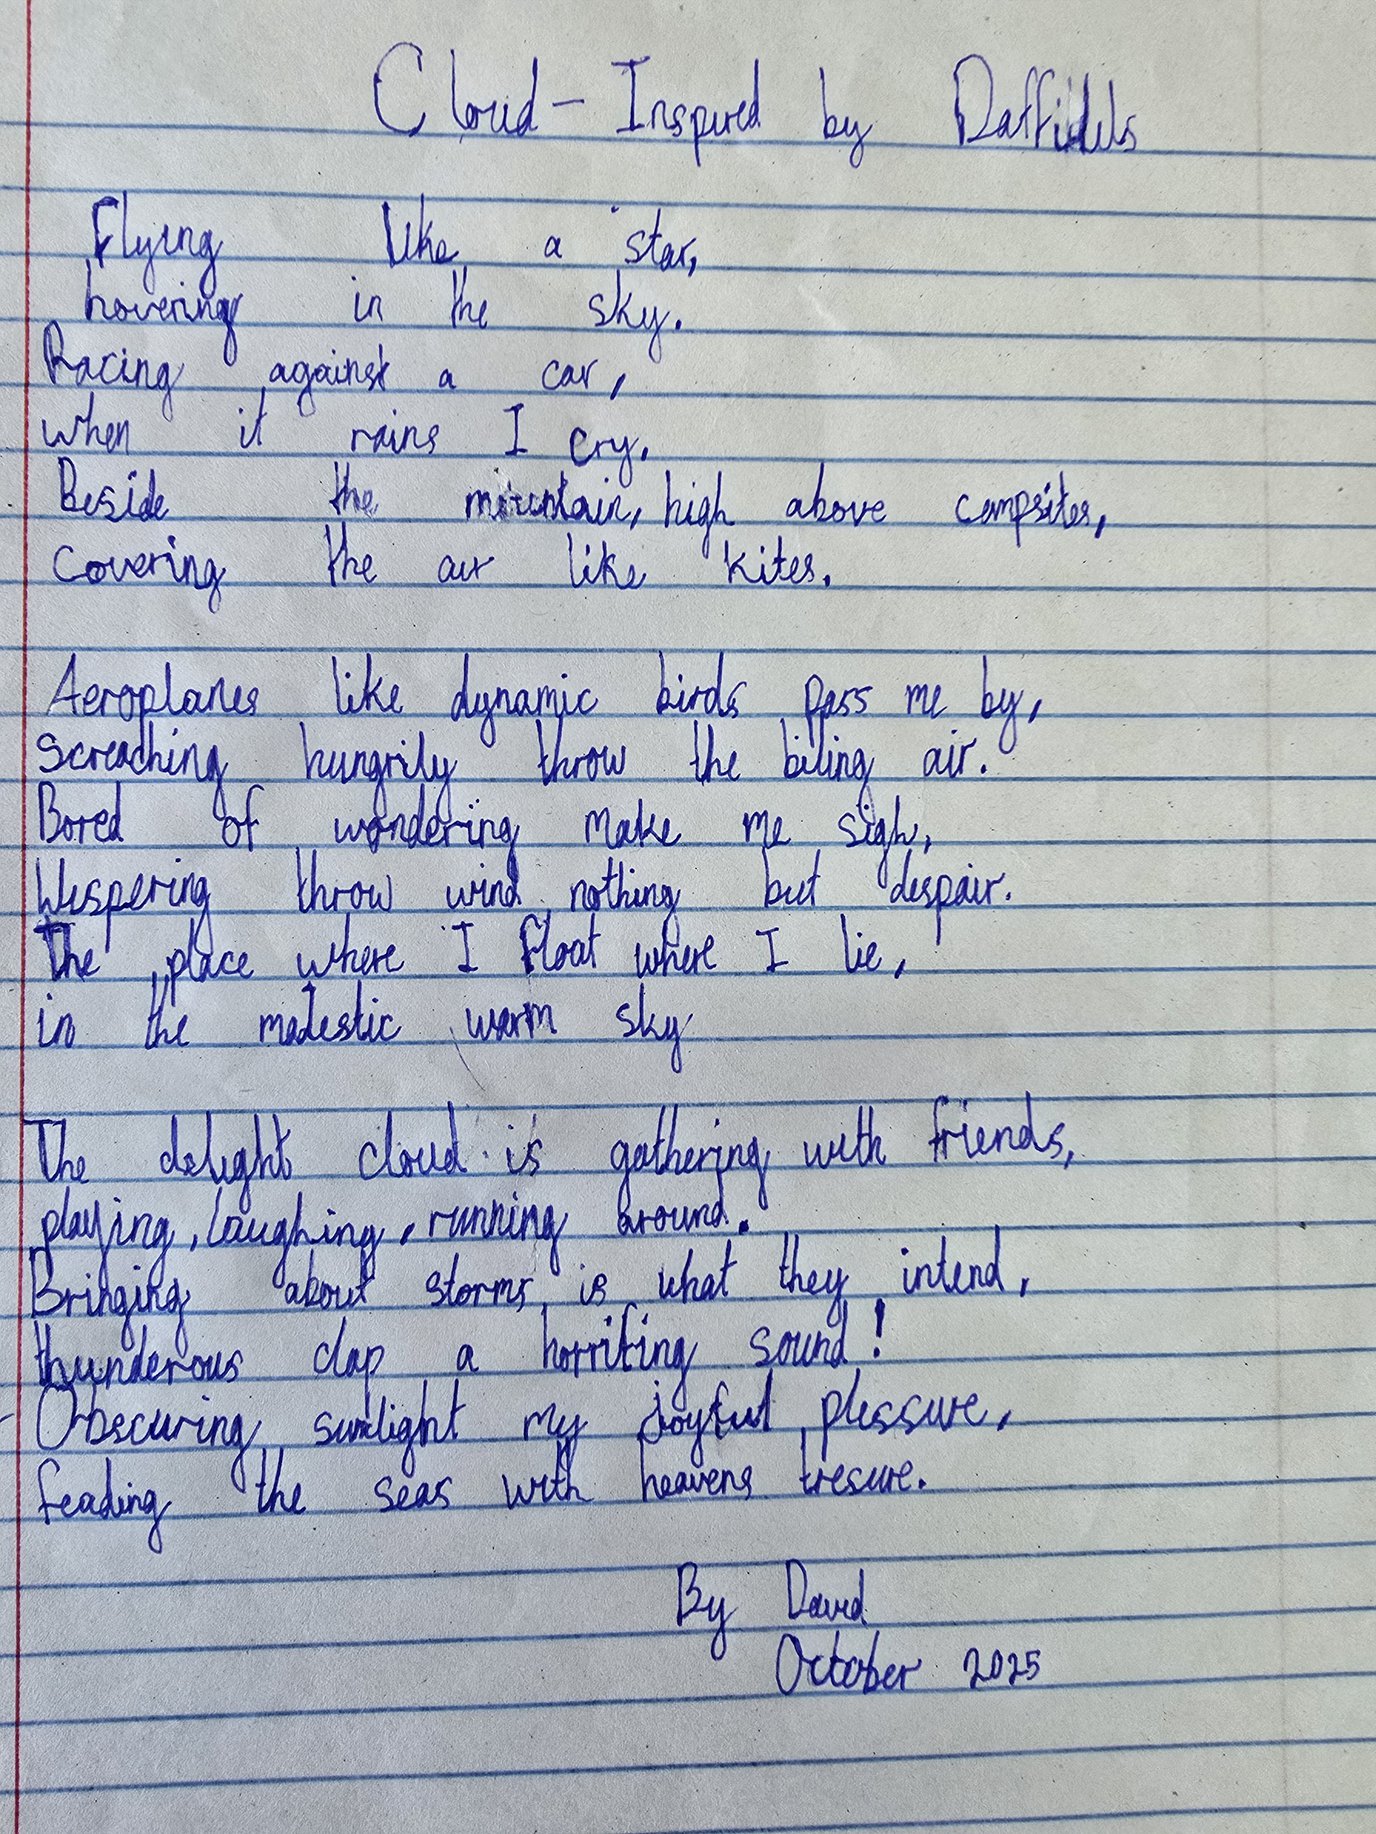 Cloud - Inspired by Daffidils
Flying like a star,
hovering in the sky.
Racing against a car,
when it rains I cry.
Beside the mountain, high above campsites,
Covering the air like kites.
Aeroplanes like dynamic birds pass me by,
Screaching hungrily throw the biting air.
Bored of wondering make me sigh,
Wispering throw wind nothing but despair.
The place where I float where I lie,
in the madestic warm sky
The delight cloud is gathering with friends,
playing, laughing, running around.
Bringing about storms is what they intend,
thunderous clap a horrifing sound!
Obscuring sunlight my joyful plessure,
feading the seas with heavens tresure.
By David
October 2025